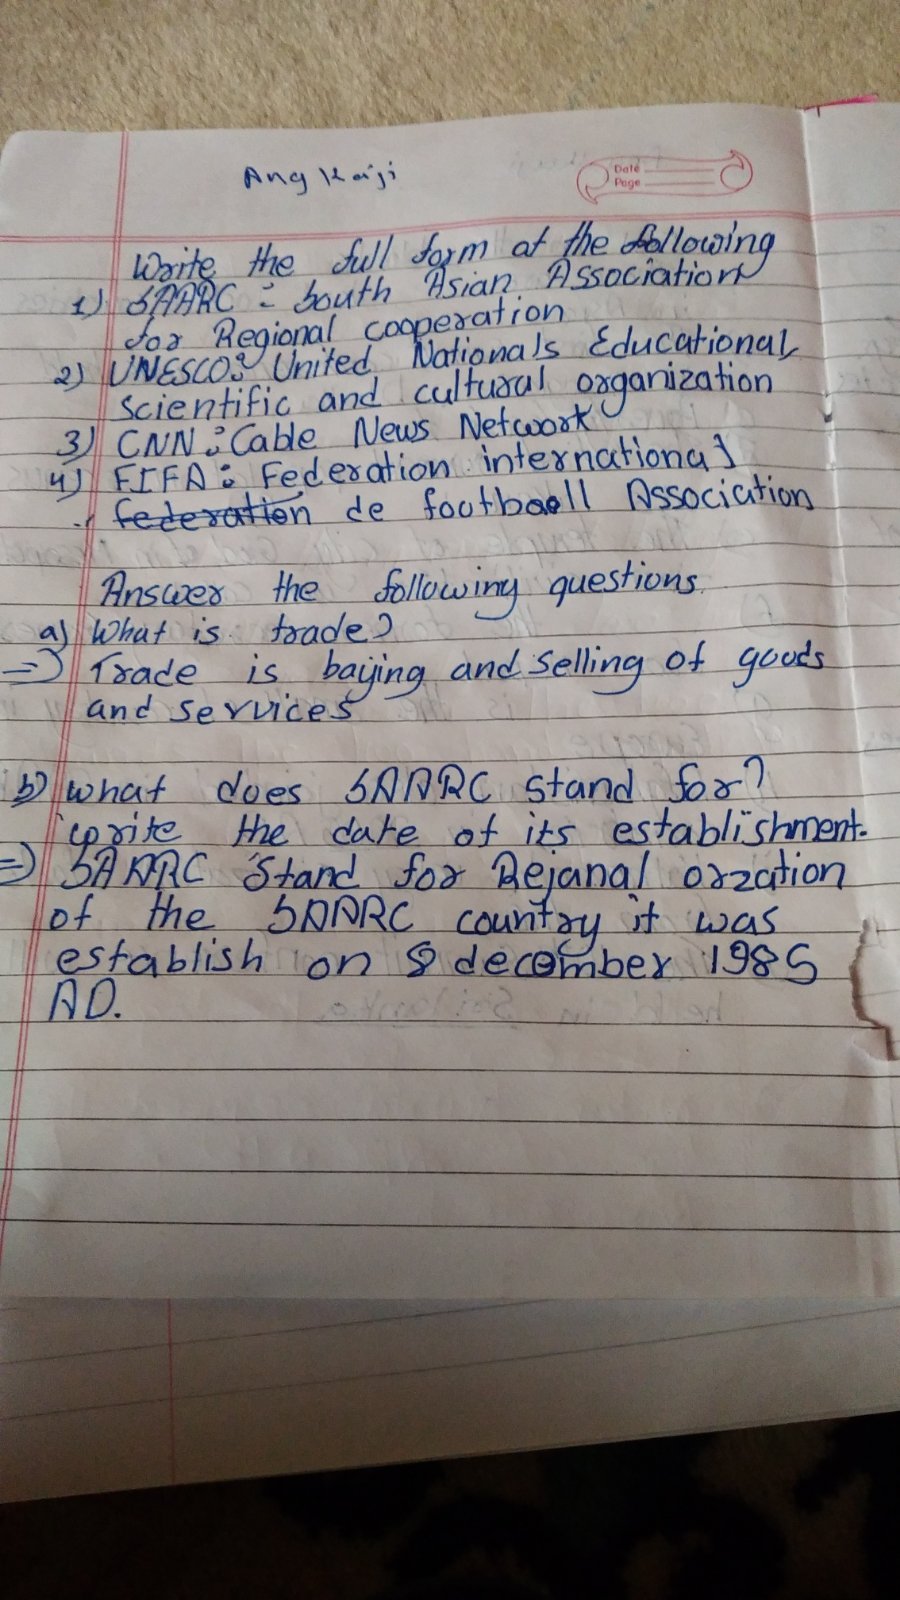 Ang Kaiji
Date
Page
Write the full form of the following
1) SAARC : South Asian Association
for Regional cooperation
2) UNESCO: United Nationals Educational
scientific and cultural organization
3) CNN : Cable News Network
4) FIFA : Federation international
federation de football Association
Answer the following questions.
a) What is trade?
=> Trade is baying and selling of goods
and services
b) what does SAARC stand for?
write the date of its establishment.
=> SAARC Stand for Rejanal orzation
of the SAARC country it was
establish on 8 december 1985
AD.